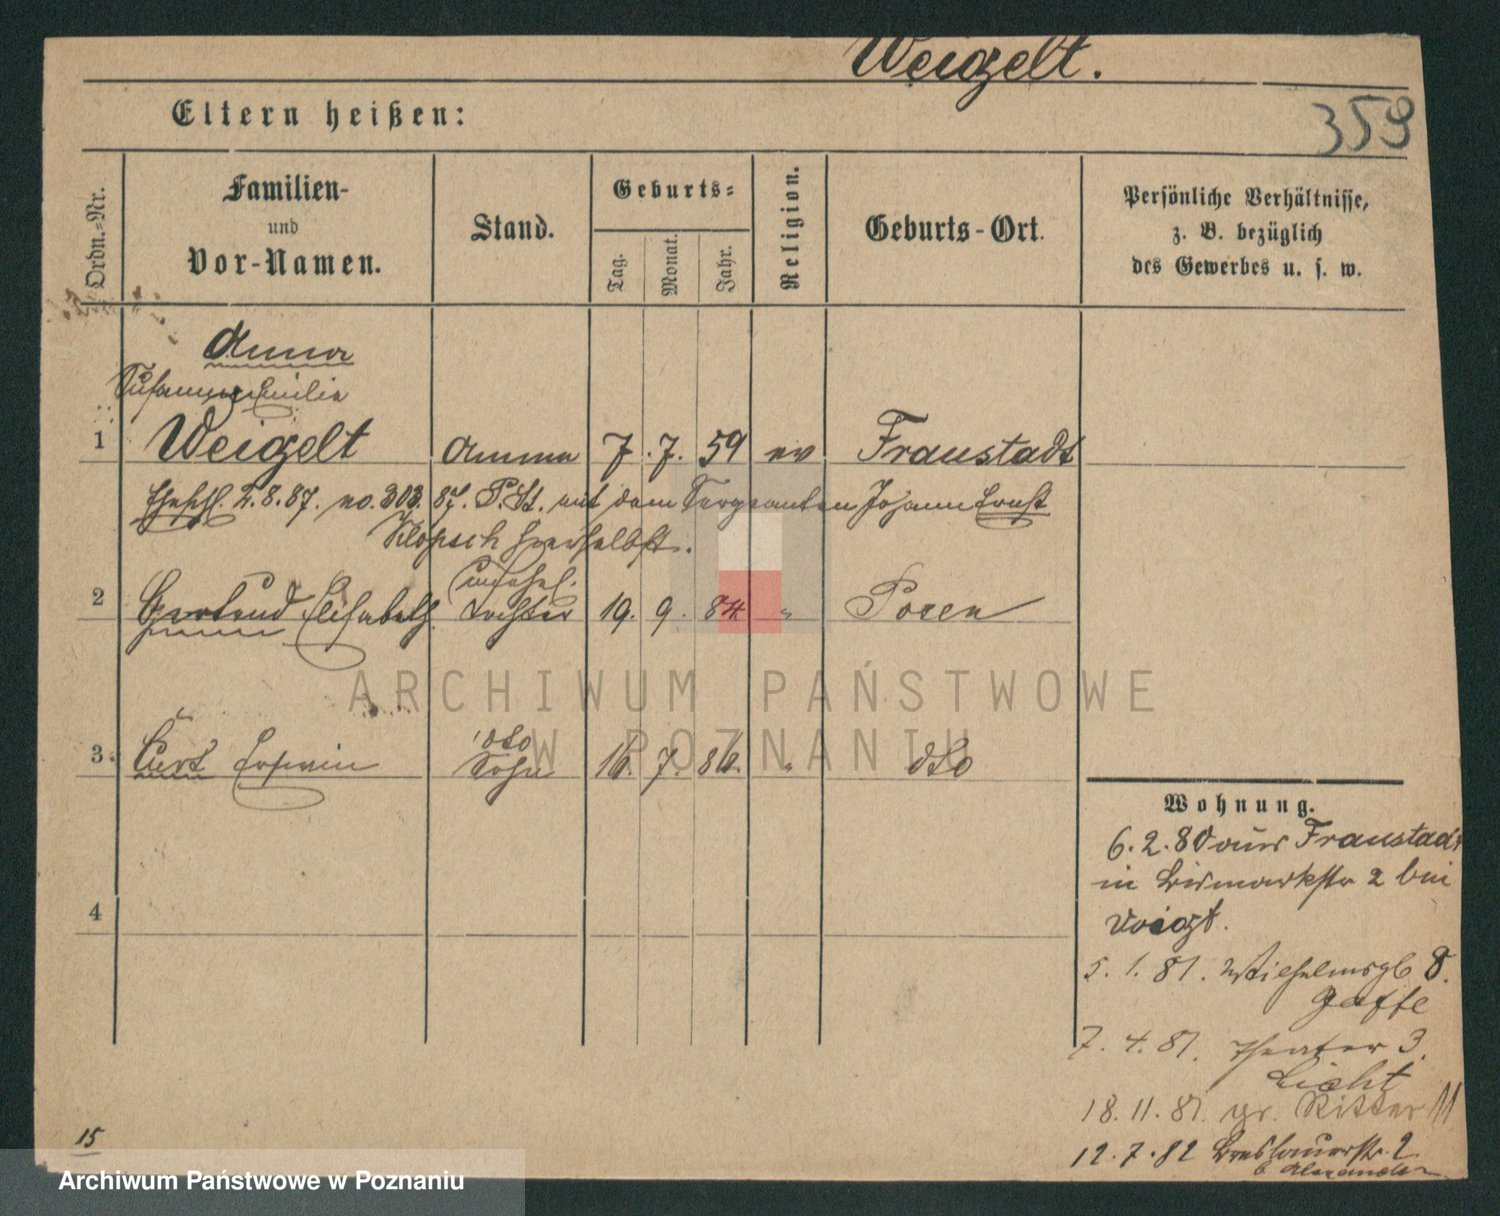 Weigelt.
Eltern heißen:
359
Ordn.-Nr.
Familien-
und
Vor-Namen.
Stand.
Geburts-
Tag.
Monat.
Jahr.
Religion.
Geburts-Ort.
Persönliche Verhältnisse,
z. B. bezüglich
des Gewerbes u. s. w.
Anna
Susanna Emilie
1 Weigelt Amme 7. 7. 59 ev Fraustadt
Ehesch. 2.8.87. no. 303. 87. P. St. mit dem Sergeanten Johann Ernst
Klopsch hierselbst.
unehel.
2 Gertrud Elisabeth Tochter 19. 9. 84 " Posen
dto
3. Curt Erwin Sohn 16. 7. 86. " dto
4
Wohnung.
6. 2. 80 aus Fraustadt
in Bismarkstr 2 bei
Voigt.
5. 1. 81. Wilhelmspl 8.
Jaffe
7. 4. 81. Theater 3.
Licht
18. 11. 81. gr. Ritter 11
12. 7. 82 Breslauerstr. 2
b Alexander
15
ARCHIWUM PAŃSTWOWE
W POZNANIU
Archiwum Państwowe w Poznaniu